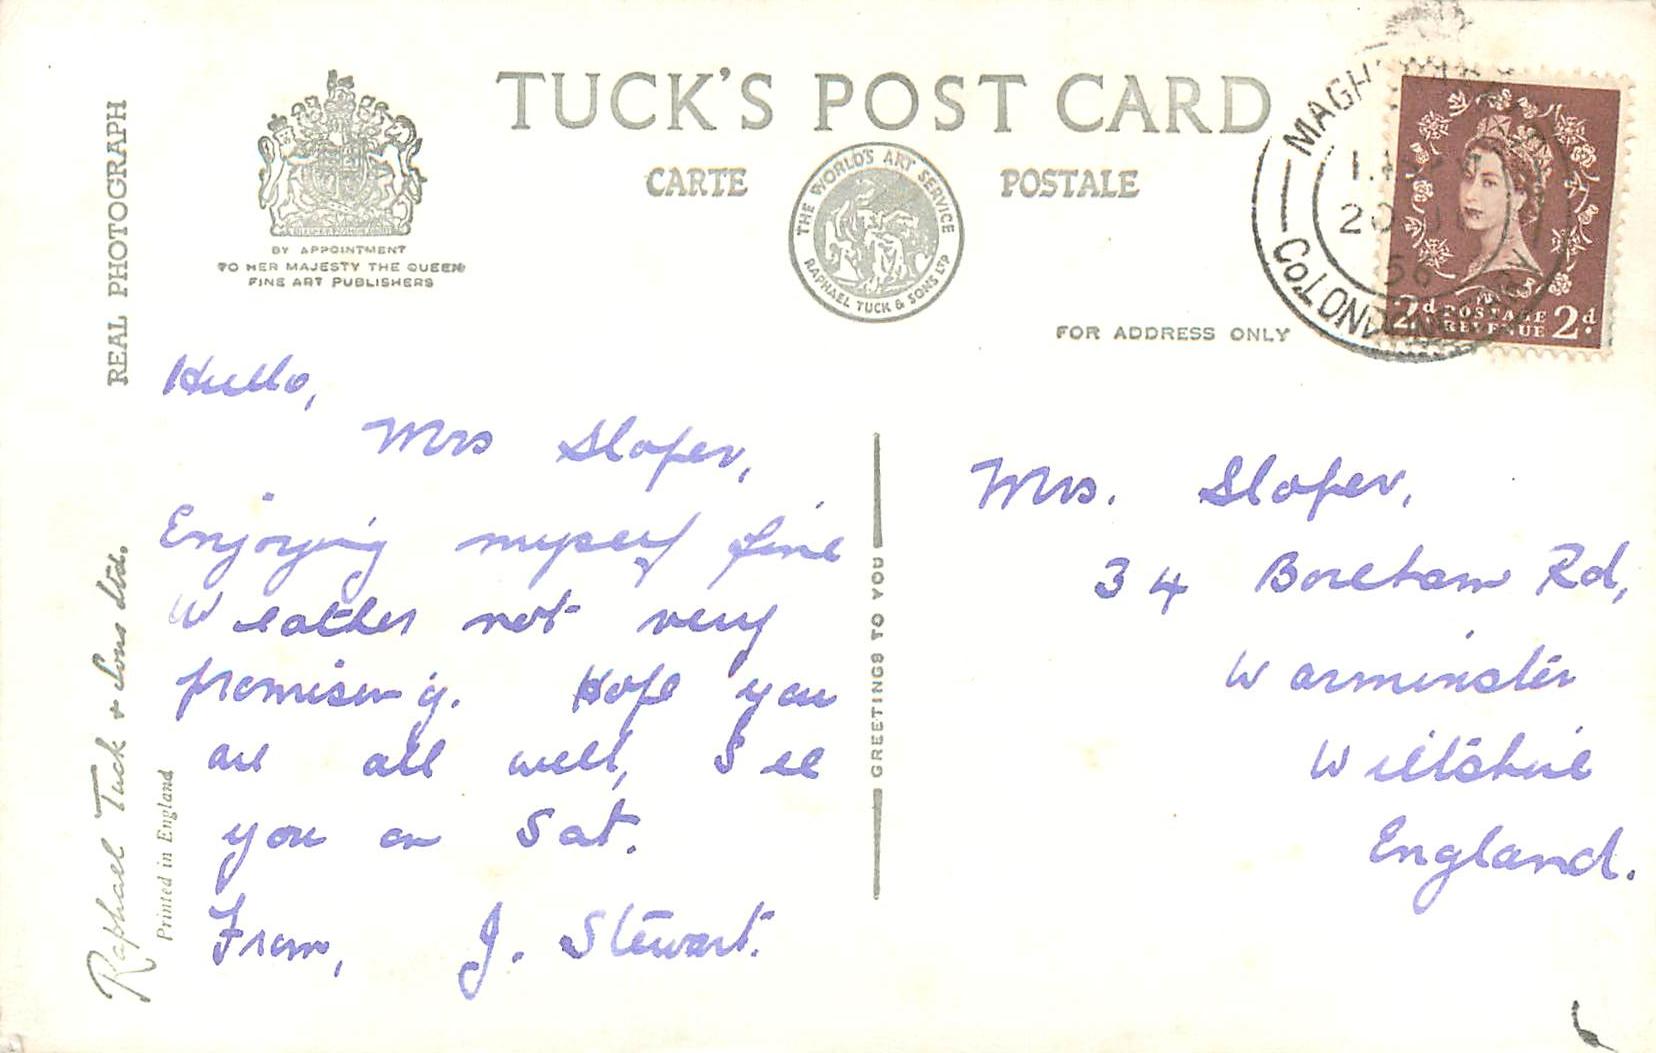 TUCK'S POST CARD
CARTE POSTALE
THE WORLD'S ART SERVICE
RAPHAEL TUCK & SONS LTD
BY APPOINTMENT
TO HER MAJESTY THE QUEEN
FINE ART PUBLISHERS
REAL PHOTOGRAPH
Raphael Tuck & Sons Ltd.
Printed in England
FOR ADDRESS ONLY
GREETINGS TO YOU
CO. LONDON
56
2d POSTAGE 2d
REVENUE
Hullo,
Mrs Sloper,
Enjoying myself fine
Weather not very
promising. Hope you
are all well, See
you on Sat.
From, J. Stewart.
Mrs. Sloper,
34 Boreham Rd,
Warminster
Wiltshire
England.